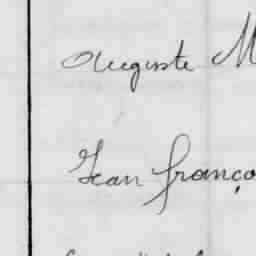 Auguste M
Jean franço